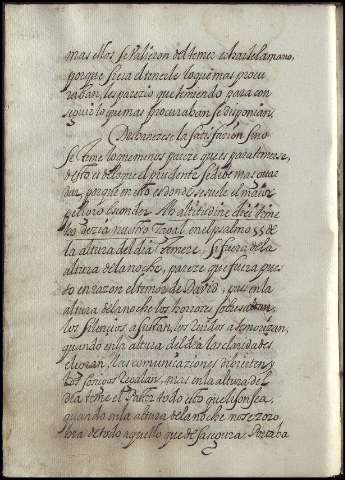 mas ellos se valieron del temer
porque si era el tenerle lo que mas procu
raban, les parezio que temiendo para con
seguir lo que mas procuraban se disponian.
Desbanezese la satisfacion sino
se teme lo que menos pareze que es para temerse,
de esto es de lo que el prudente se debe mas guar
dar, porque en esto es donde se suele el maior
peligro esconder. Ab altitudine diei time
bo dezia nuestro Real en el psalmo 55 de
la altura del dia temere. Si fuera de la
altura de la noche, pareze que fuera pues
to en razon el temor de David, pues en la
altura de la noche los horrores sobresaltan,
los silencios asustan, los ruidos atemorizan,
quando en la altura del dia las claridades
las comunicaciones dibierten y
los sonidos regalan, mas en la altura del
dia teme el todo esto que lisongea,
quando en la altura de la noche no se zozo
bra de todo aquello que desasegura. Portaba